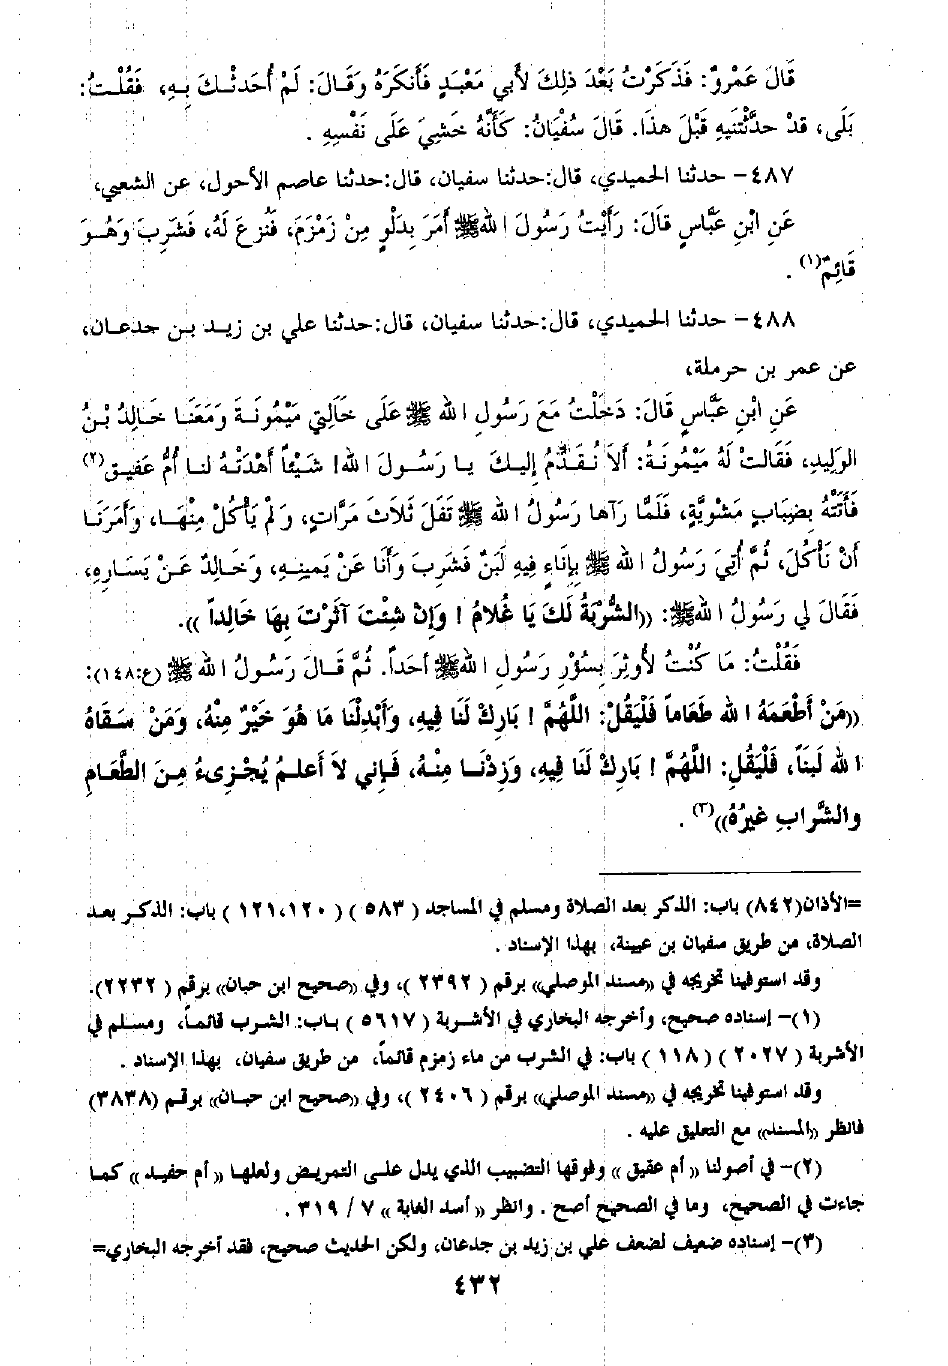 قَالَ عَمْروٌ: فَذَكَرْتُ بَعْدَ ذلِكَ لأَبي مَعْبَدٍ فَأَنكَرَهُ وَقَـالَ: لَمْ أُحَدثْـكَ بِـهِ، فَقُلْـتُ:
بَلَى، قدْ حدَّثْتَنيهِ قَبْلَ هذَا. قَالَ سُفْيَانُ: كَأَنَّهُ خَشِيَ عَلَى نَفْسِهِ .
٤٨٧- حدثنا الحميدي، قال:حدثنا سفيان، قال:حدثنا عاصم الأحول، عن الشعبي،
عَنِ ابْنِ عَبَّاسٍ قالَ: رَأَيْتُ رَسُولَ اللهﷺ أَمَرَ بِدَلْوٍ مِنْ زَمْزَمَ، فَنُزِعَ لَهُ، فَشَرِبَ وَهُـوَ
قَائِمٌ(١) .
٤٨٨- حدثنا الحميدي، قال:حدثنا سفيان، قال:حدثنا علي بن زيـد بـن جدعـان،
عن عمر بن حرملة،
عَنِ ابْنِ عَبَّاسٍ قَالَ: دَخَلْتُ مَعَ رَسُولِ الله ﷺ عَلَى خَالَتِي مَيْمُونَـةَ وَمَعَنَـا خَـالِدُ بْـنُ
الوَلِيدِ، فَقَالتْ لَهُ مَيْمُونَـةُ: أَلاَ نُقَـدِّمُ إِليكَ يـا رَسُـولَ اللهِ! شَيْئاً أَهْدَتْـهُ لنـا أُمُّ عَفيـق(٢)
فَأَتَتْهُ بِضِبَابٍ مَشْوِيَّةٍ، فَلَمَّا رَآها رَسُولُ الله ﷺ تَفَلَ ثَلاَثَ مَرَّاتٍ، وَلَمْ يَأْكُلْ مِنْهَـا، وَأَمَرَنَـا
أَنْ نَأْكُلَ، ثُمَّ أُتِيَ رَسُولُ الله ﷺ بِإِنَاءٍ فِيهِ لَبَنٌ فَشَرِبَ وَأَنَا عَنْ يَمِينِـهِ، وَخَـالِدٌ عَـنْ يَسَارِهِ،
فَقَالَ لي رَسُولُ اللهﷺ: ((الشُّرْبَةُ لَكَ يَا غُلاَمُ ! وَإِنْ شِئْتَ آثَرْتَ بِهَا خَالِداً )).
فَقُلْتُ: مَا كُنْتُ لأُوثِرَ بِسُؤْرِ رَسُولِ اللهﷺ أَحَداً. ثُمَّ قَـالَ رَسُـولُ الله ﷺ (ع:١٤٨):
((مَنْ أَطْعَمَهُ الله طَعَاماً فَلْيَقُلْ: اللَّهُمَّ ! بَارِكْ لَنَا فِيهِ، وَأَبْدِلْنَا مَا هُوَ خَيْرٌ مِنْهُ، وَمَنْ سَـقَاهُ
الله لَبناً، فَلْيَقُلِ: اللَّهُمَّ ! بَارِكْ لَنَا فِيهِ، وَزِدْنَـا مِنْـهُ، فَـإني لاَ أَعلـمُ يُجْزِىءُ مِـنَ الطَّعَـامِ
والشَّرابِ غَيرُهُ))(٣) .
=الأذان(٨٤٢) باب: الذكر بعد الصلاة ومسلم في المساجد ( ٥٨٣ ) ( ١٢١،١٢٠ ) باب: الذكـر بعـد
الصلاة، من طريق سفيان بن عيينة، بهذا الإسناد .
وقد استوفينا تخريجه في ((مسند الموصلي)) برقم ( ٢٣٩٢ )، وفي ((صحيح ابن حبان)) برقم ( ٢٢٣٢).
(١)- إسناده صحيح، وأخرجه البخاري في الأشربة ( ٥٦١٧ ) بـاب: الشرب قائمـاً، ومسـلم في
الأشربة ( ٢٠٢٧ ) ( ١١٨ ) باب: في الشرب من ماء زمزم قائماً، من طريق سفيان، بهذا الإسناد .
وقد استوفينا تخريجه في ((مسند الموصلي)) برقم ( ٢٤٠٦ )، وفي ((صحيح ابن حبـان)) برقـم (٣٨٣٨)
فانظر ((المسند)) مع التعليق عليه .
(٢)- في أصولنا (( أم عقيق )) وفوقها التضبيب الذي يدل علـى التمريـض ولعلهـا (( أم حفيـد )) كمـا
جاءت في الصحيح، وما في الصحيح أصح . وانظر (( أسد الغابة )) ٧ / ٣١٩ .
(٣)- إسناده ضعيف لضعف علي بن زيد بن جدعان، ولكن الحديث صحيح، فقد أخرجه البخاري=
٤٣٢